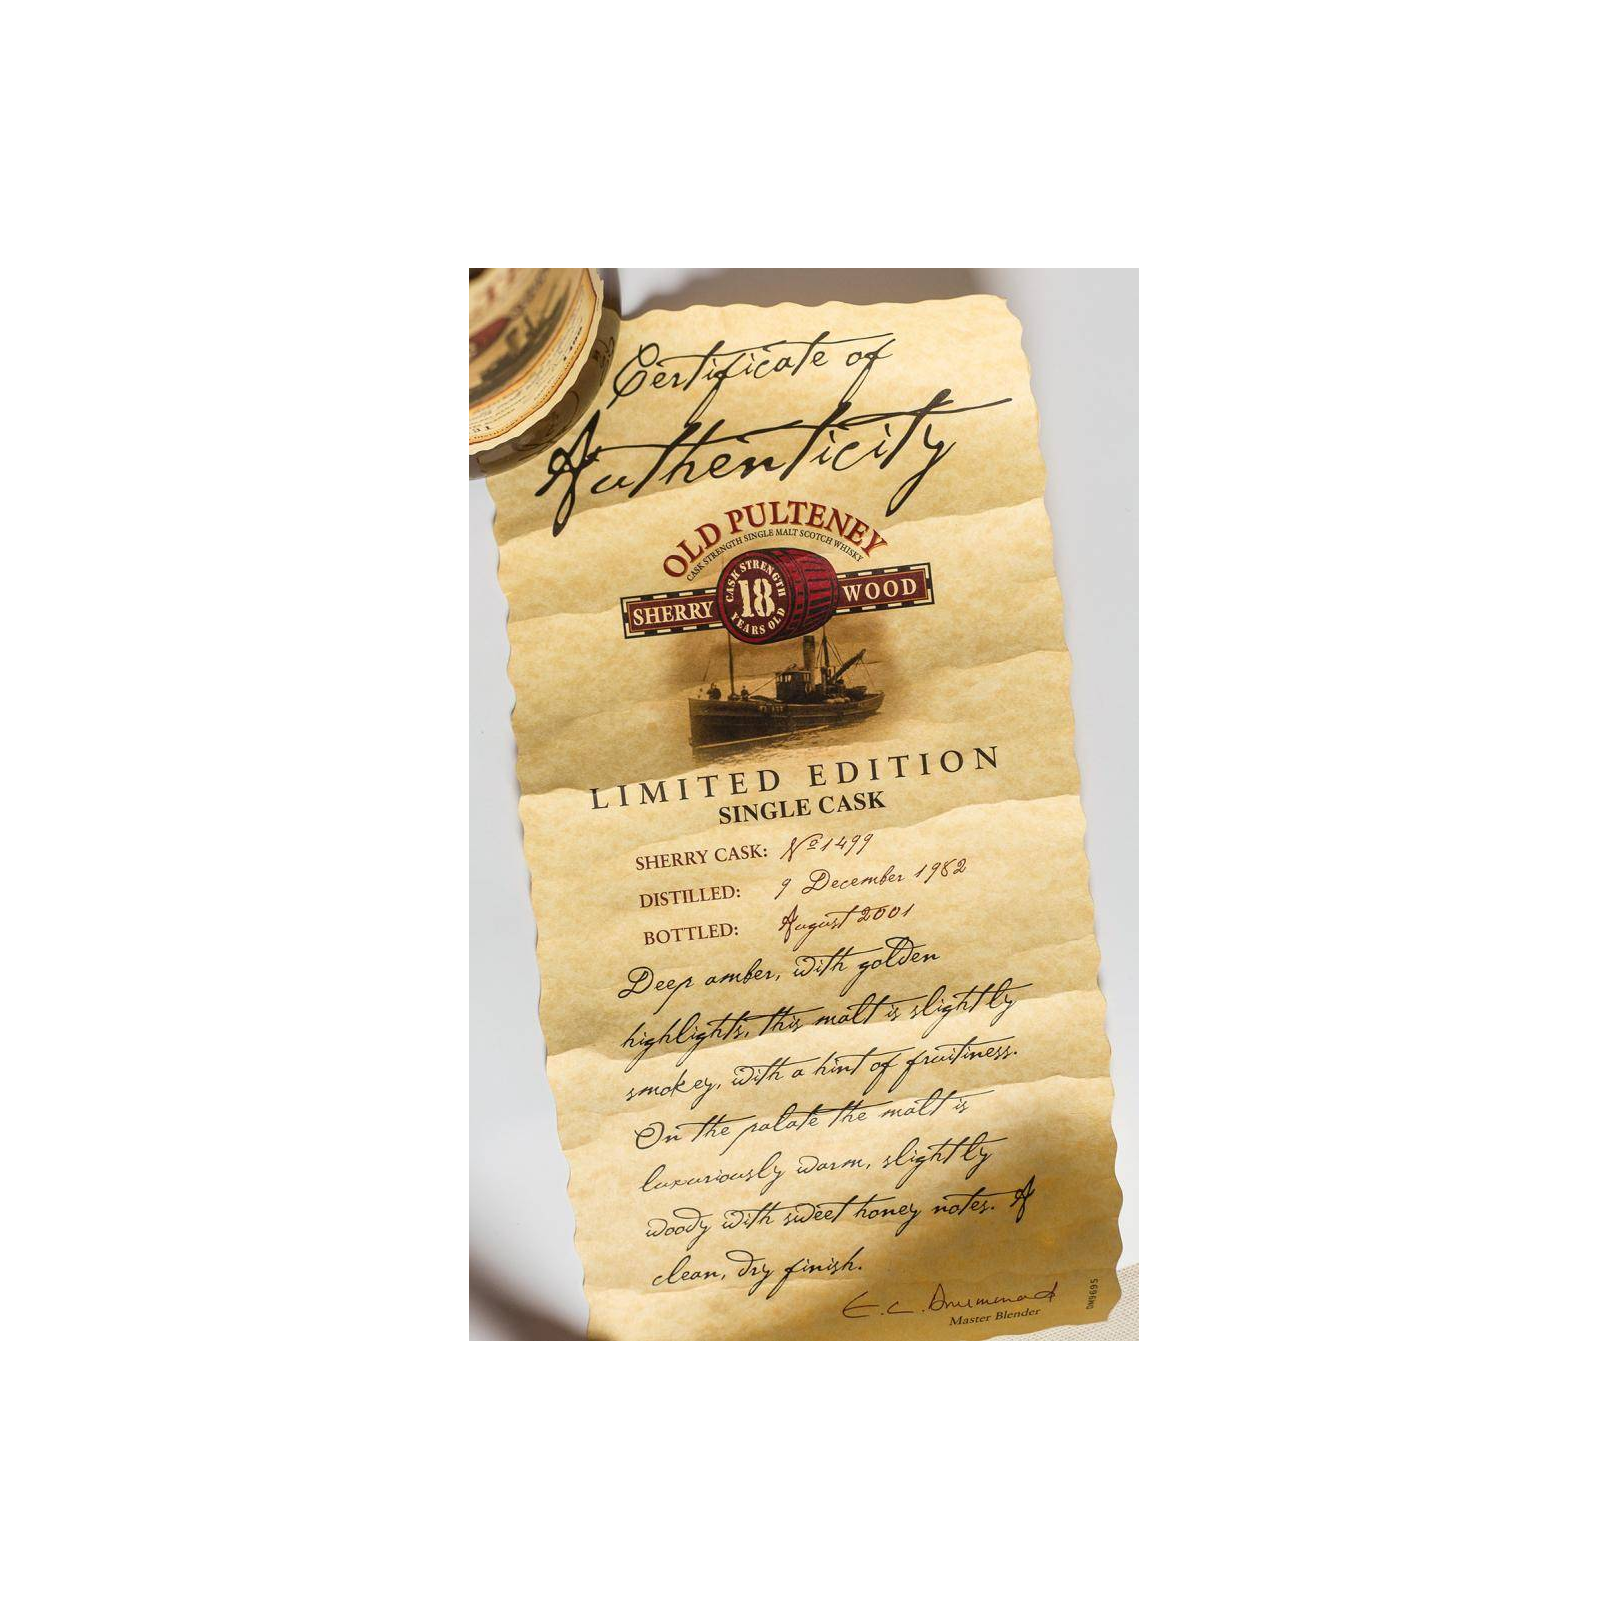 Certificate of
Authenticity
OLD PULTENEY
CASK STRENGTH SINGLE MALT SCOTCH WHISKY
CASK STRENGTH
SHERRY 18 WOOD
YEARS OLD
LIMITED EDITION
SINGLE CASK
SHERRY CASK: Nº 1499
DISTILLED: 9 December 1982
BOTTLED: August 2001
Deep amber, with golden
highlights, this malt is slightly
smokey, with a hint of fruitiness.
On the palate the malt is
luxuriously warm, slightly
woody with sweet honey notes. A
clean, dry finish.
E.C. Drummond
Master Blender
DM9695